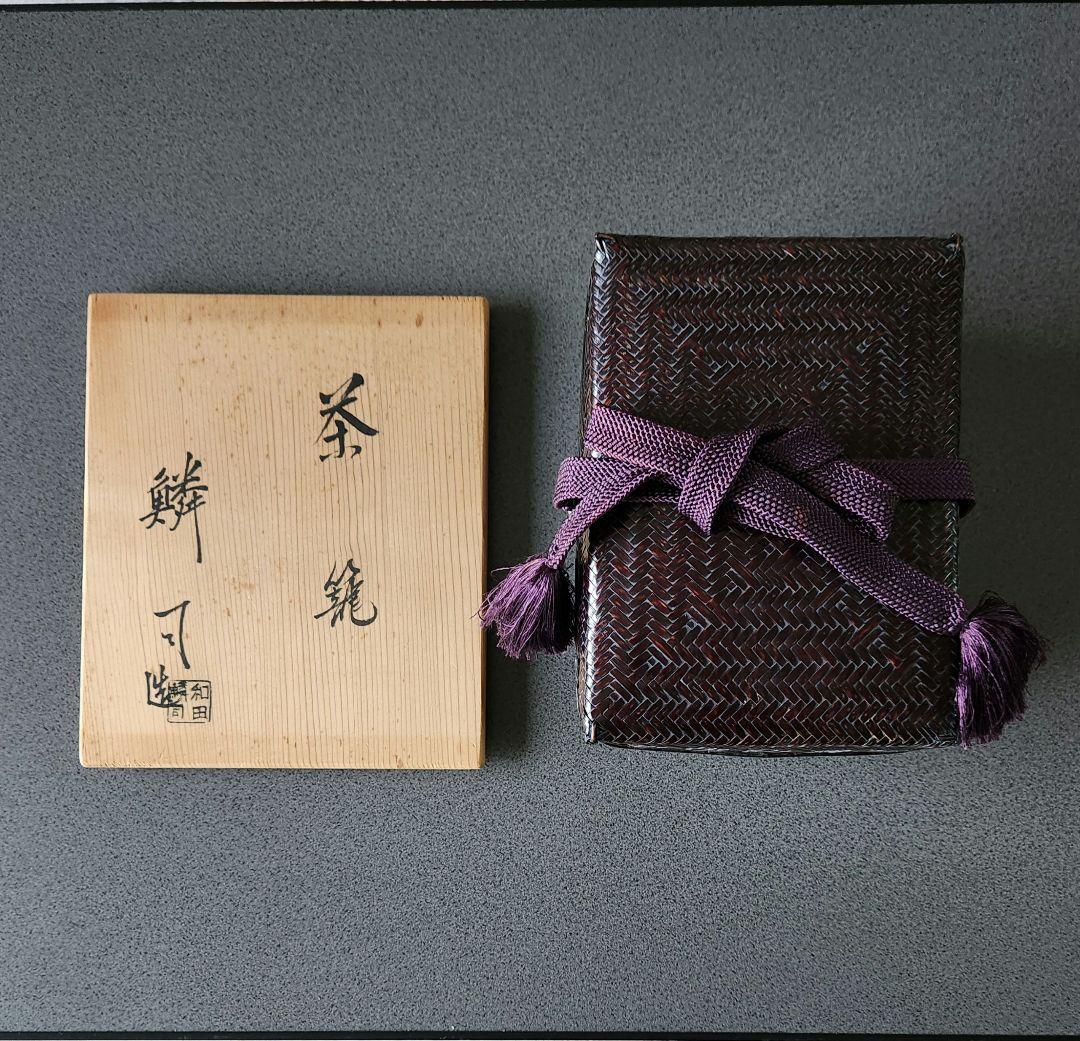 茶籠
鱗司造
和田
鱗司